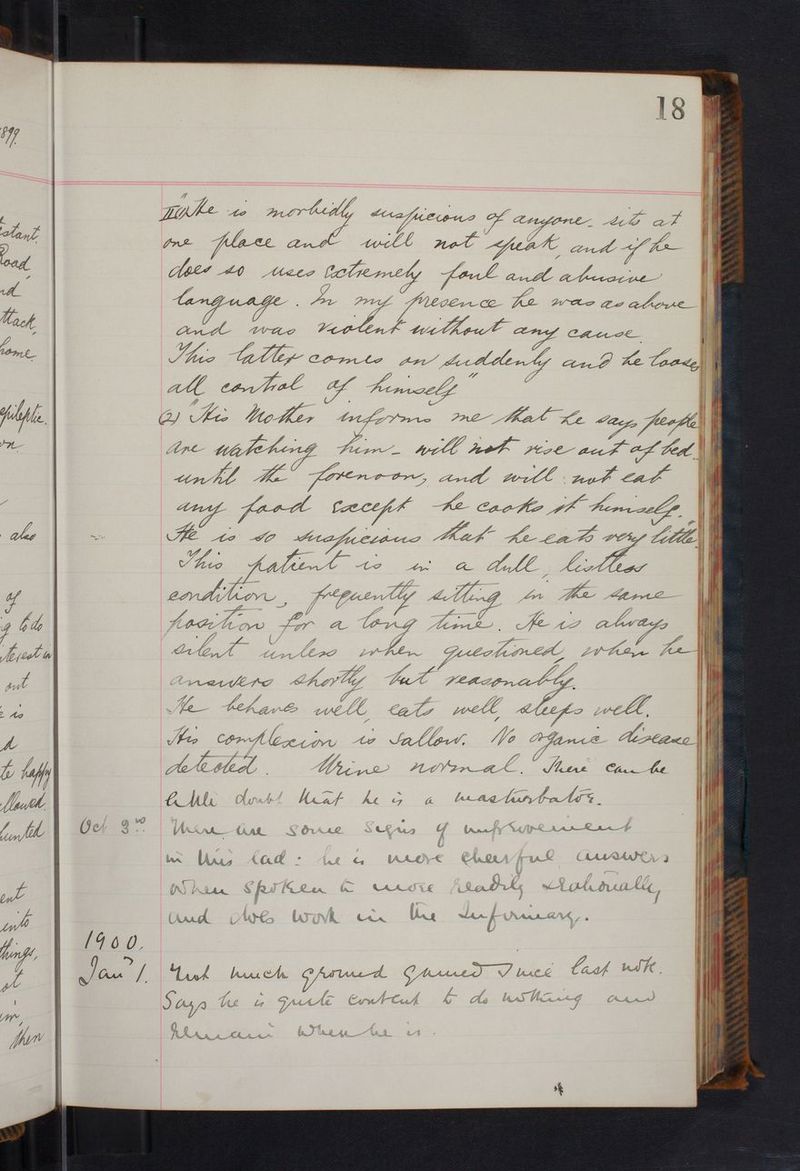 18
II (1) "He is morbidly suspicious of anyone - sits at
one place and will not speak, and if he
does so uses extremely foul and abusive
language. In my presence he was as above
and was violent without any cause.
This latter comes on suddenly and he looses
all control of himself"
(2) "His Mother informs me that he says people
are watching him - will not rise out of bed
until the forenoon, and will not eat
any food except he cooks it himself.
He is so suspicious that he eats very little."
This patient is in a dull, listless
condition, frequently sitting in the same
position for a long time. He is always
silent unless when questioned, when he
answers shortly but reasonably.
He behaves well, eats well, sleeps well.
His complexion is sallow. No organic disease
detected. Urine normal. There can be
little doubt that he is a masturbator.
Oct 3rd. There are some signs of improvement
in this lad: he is more cheerful, answers
when spoken to more readily & rationally,
and does work in the Infirmary.
1900.
Jany 1. Not much ground gained since last note.
Says he is quite content to do nothing and
remain where he is.
899.
stant.
Road
nd
ttack,
home.
epileptic.
on
also
of
g to do
terest in
out
e is
d
te happy
llowed.
hunted
ent
into
things,
at
im,
then